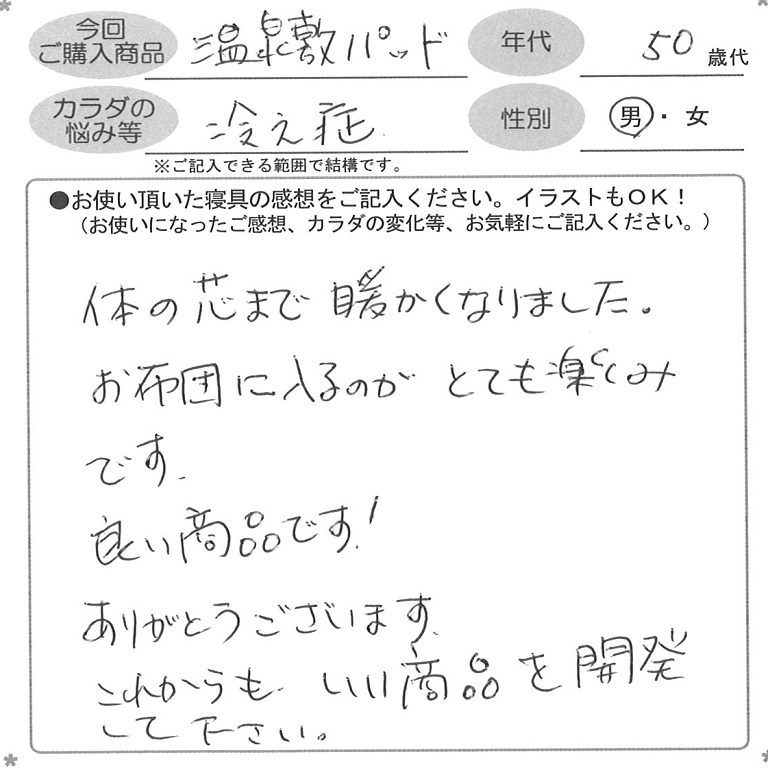 今回
ご購入商品
温泉敷パッド
年代
50 歳代
カラダの
悩み等
冷え症
性別
男・女
※ご記入できる範囲で結構です。
●お使い頂いた寝具の感想をご記入ください。イラストもOK!
(お使いになったご感想、カラダの変化等、お気軽にご記入ください。)
体の芯まで暖かくなりました。
お布団に入るのがとても楽しみ
です。
良い商品です!
ありがとうございます。
これからも、いい商品を開発
して下さい。